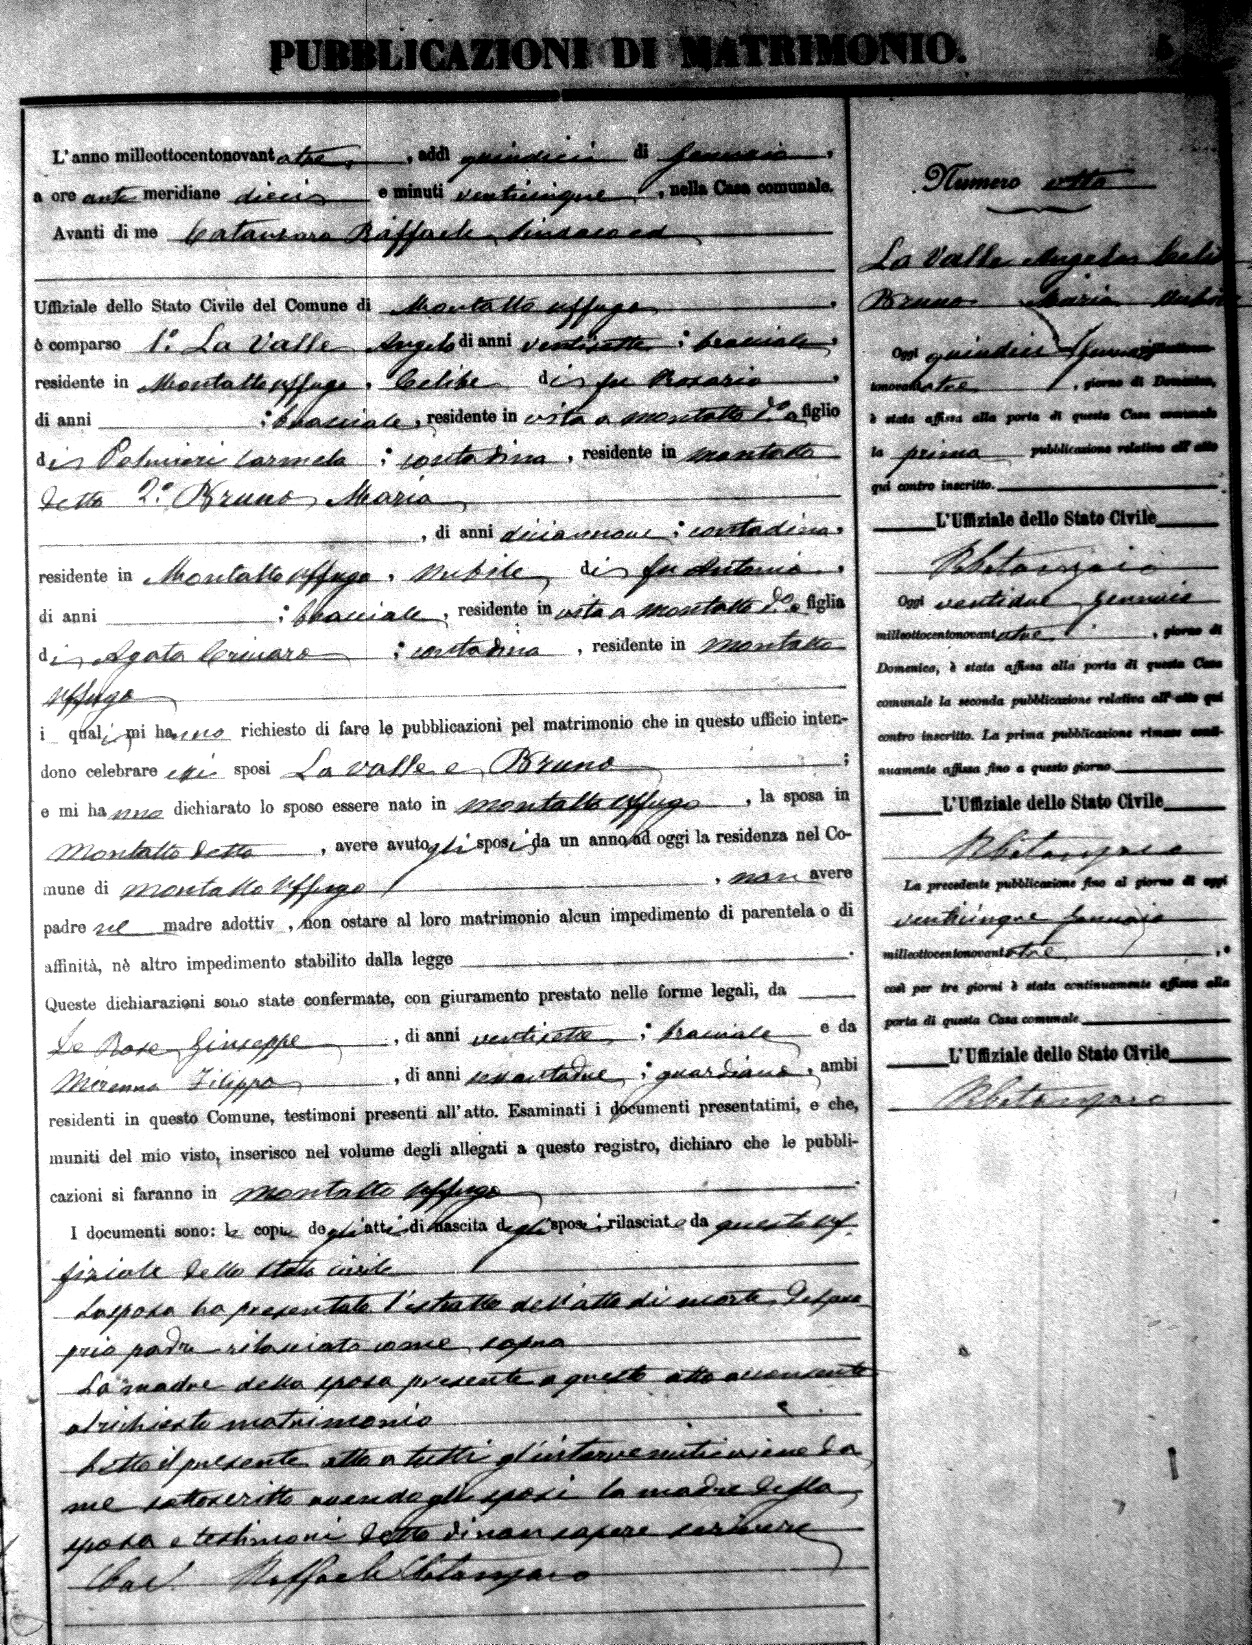 PUBBLICAZIONI DI MATRIMONIO.
5
L'anno milleottocentonovantatre, addì quindici di Gennaio,
a ore ante meridiane dieci e minuti venticinque, nella Casa comunale.
Avanti di me Catanzaro Raffaele Sindaco ed
Uffiziale dello Stato Civile del Comune di Montalto Uffugo
è comparso 1º La Valle Angelo di anni ventisette; bracciale,
residente in Montalto Uffugo, Celibe di fu Rosario,
di anni ; bracciale, residente in vita a Montalto do figlio
di Palmieri Carmela; contadina, residente in Montalto
detto 2º Bruno Maria
, di anni diciannove; contadina,
residente in Montalto Uffugo, nubile, di fu Antonio,
di anni ; bracciale, residente in vita a Montalto do figlia
di Agata Crivaro; contadina, residente in Montalto
Uffugo
i quali mi hanno richiesto di fare le pubblicazioni pel matrimonio che in questo ufficio inten-
dono celebrare essi sposi La Valle e Bruno;
e mi hanno dichiarato lo sposo essere nato in Montalto Uffugo, la sposa in
Montalto detto, avere avuto gli sposi da un anno ad oggi la residenza nel Co-
mune di Montalto Uffugo, non avere
padre nè madre adottiv , non ostare al loro matrimonio alcun impedimento di parentela o di
affinità, nè altro impedimento stabilito dalla legge .
Queste dichiarazioni sono state confermate, con giuramento prestato nelle forme legali, da
De Rose Giuseppe, di anni ventisette; bracciale e da
Mirenna Filippo, di anni sessantadue; guardiano, ambi
residenti in questo Comune, testimoni presenti all'atto. Esaminati i documenti presentatimi, e che,
muniti del mio visto, inserisco nel volume degli allegati a questo registro, dichiaro che le pubbli-
cazioni si faranno in Montalto Uffugo.
I documenti sono: le copie degli atti di nascita degli sposi; rilasciate da questo Uf-
fiziale dello stato civile
La sposa ha presentato l'estratto dell'atto di morte del pro-
prio padre rilasciato come sopra
La madre della sposa presente a questo atto acconsente
al richiesto matrimonio
Letto il presente atto a tutti gl'intervenuti viene da
me sottoscritto avendo gli sposi la madre della
sposa e testimoni detto di non sapere scrivere
Cav. Raffaele Catanzaro
Numero otto
La Valle Angelo Celi
Bruno Maria Nubile
Oggi quindici Gennaio milleottocen-
tonovantatre, giorno di Domenica,
è stata affissa alla porta di questa Casa comunale
la prima pubblicazione relativa all'atto
qui contro inscritto.
L'Uffiziale dello Stato Civile
RCatanzaro
Oggi ventidue Gennaio
milleottocentonovantatre, giorno di
Domenica, è stata affissa alla porta di questa Casa
comunale la seconda pubblicazione relativa all'atto qui
contro inscritto. La prima pubblicazione rimase conti-
nuamente affissa fino a questo giorno
L'Uffiziale dello Stato Civile
RCatanzaro
La precedente pubblicazione fino al giorno di oggi
venticinque Gennaio
milleottocentonovantatre, e
così per tre giorni è stata continuamente affissa alla
porta di questa Casa comunale
L'Uffiziale dello Stato Civile
RCatanzaro